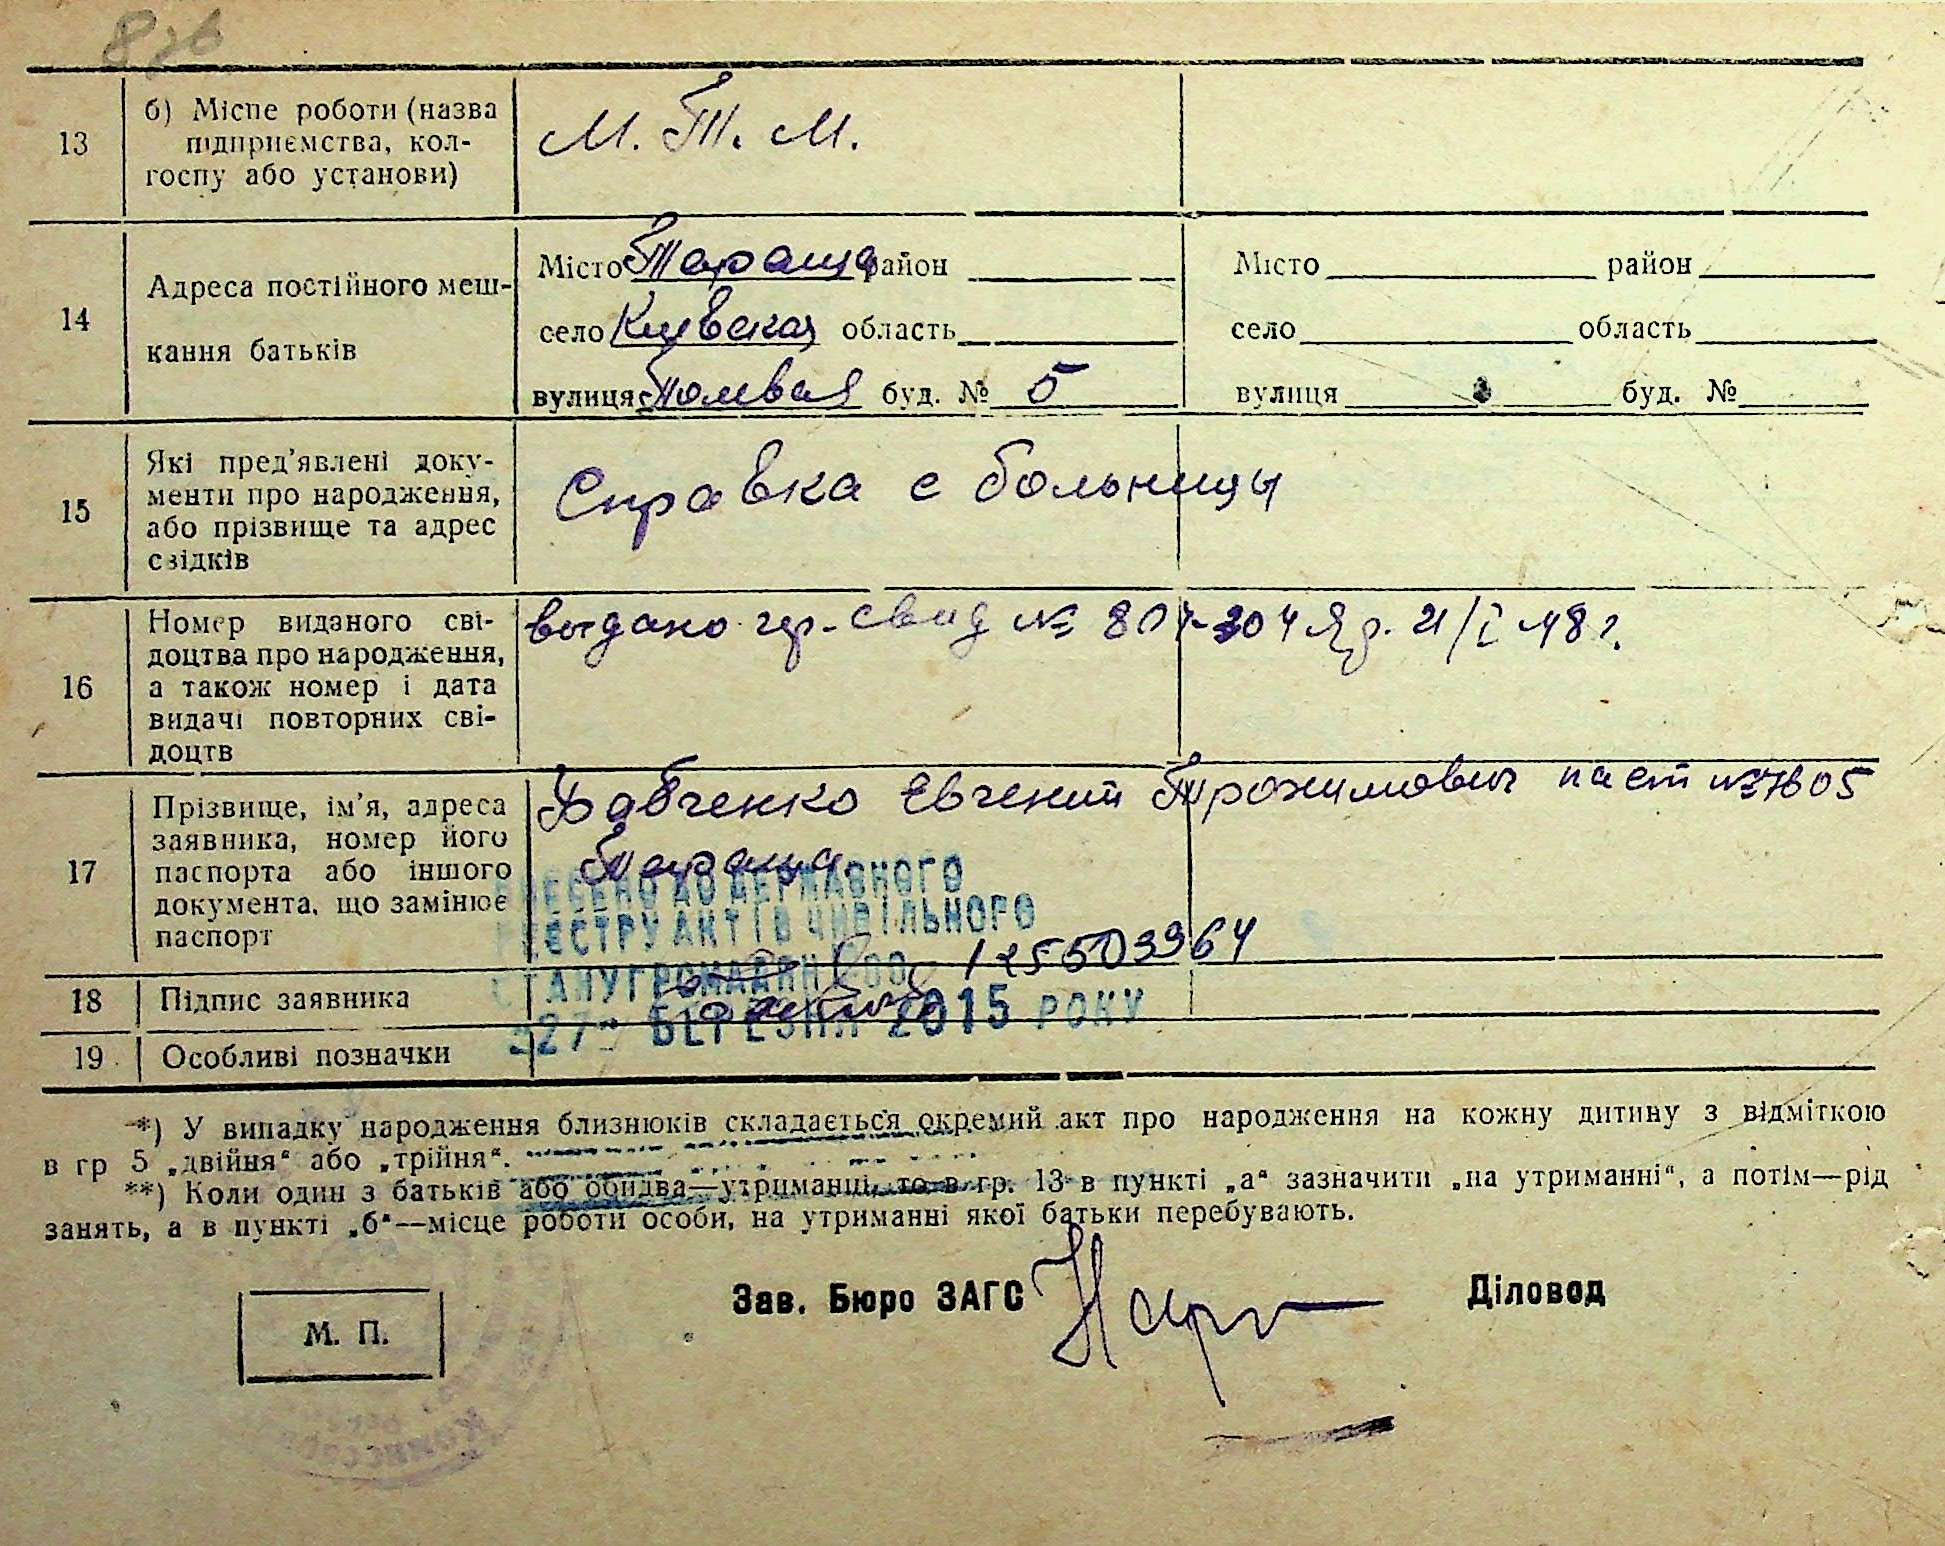 13
б) Місце роботи (назва
підприємства, кол-
госпу або установи)
М. Т. М.
14
Адреса постійного меш-
кання батьків
Місто Тараща район
село Киевская область
вулиця Полевая буд. № 5
Місто район
село область
вулиця буд. №
15
Які пред’явлені доку-
менти про народження,
або прізвище та адрес
свідків
Справка с больницы
16
Номер виданого сві-
доцтва про народження,
а також номер і дата
видачі повторних сві-
доцтв
выдано гр. свид №
21/I 48 г.
17
Прізвище, ім’я, адреса
заявника, номер його
паспорта або іншого
документа, що замінює
паспорт
Бабченко Евгений Трофимович
Тараща
ВНЕСЕНО ДО ДЕРЖАВНОГО
РЕЄСТРУ АКТІВ ЦИВІЛЬНОГО
СТАНУ ГРОМАДЯН 125503964
27 БЕРЕЗНЯ 2015 РОКУ
18
Підпис заявника
19
Особливі позначки
*) У випадку народження близнюків складається окремий акт про народження на кожну дитину з відміткою
в гр 5 „двійня“ або „трійня“.
**) Коли один з батьків або обидва—утриманці, то в гр. 13 в пункті „а“ зазначити „на утриманні“, а потім—рід
занять, а в пункті „б“—місце роботи особи, на утриманні якої батьки перебувають.
М. П.
Зав. Бюро ЗАГС
Діловод